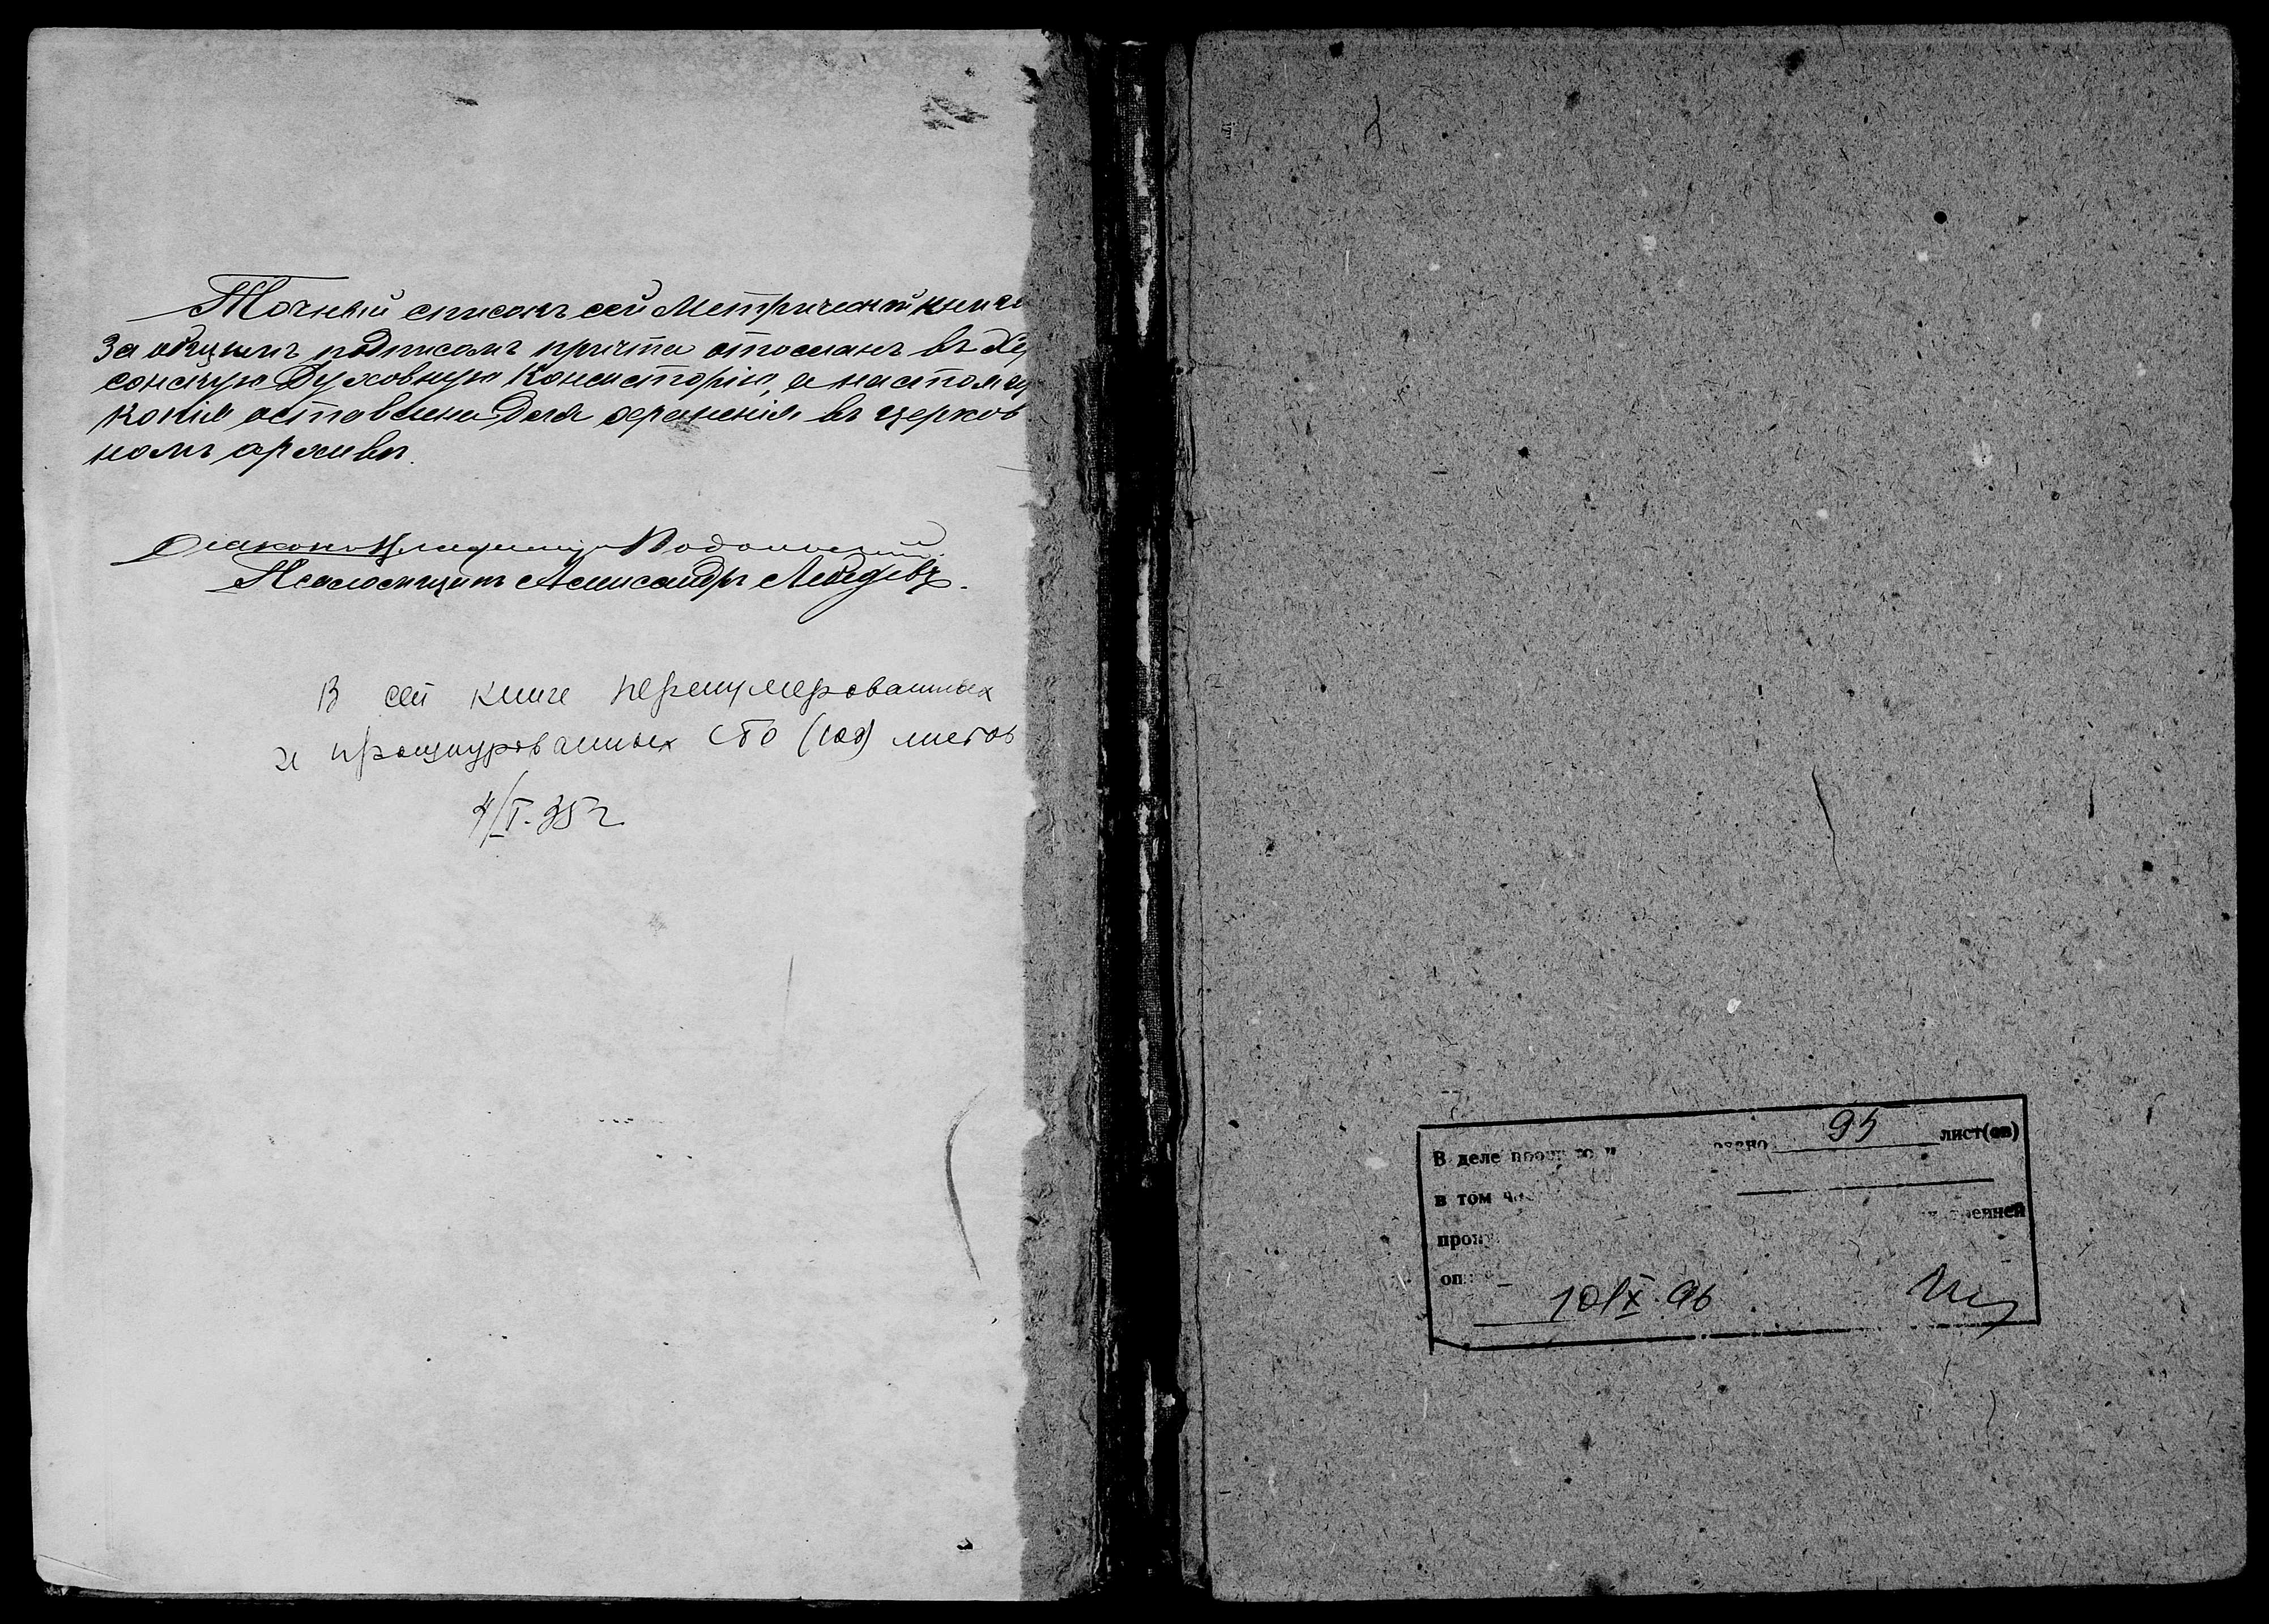 Точный списокъ сей Метрической книги
за общимъ подписомъ причта отосланъ въ Хер
сонскую Духовную Консисторію, а настоящ
копія оставлена для храненія въ церков
номъ архивѣ.
Діаконъ Подольскій.
Псаломщикъ Александръ Лебедевъ.
В сей книге перенумерованных
и прошнурованных сто (100) листов
4/I. 35 г
В деле 95 лист(ов)
в том
10/IX. 96